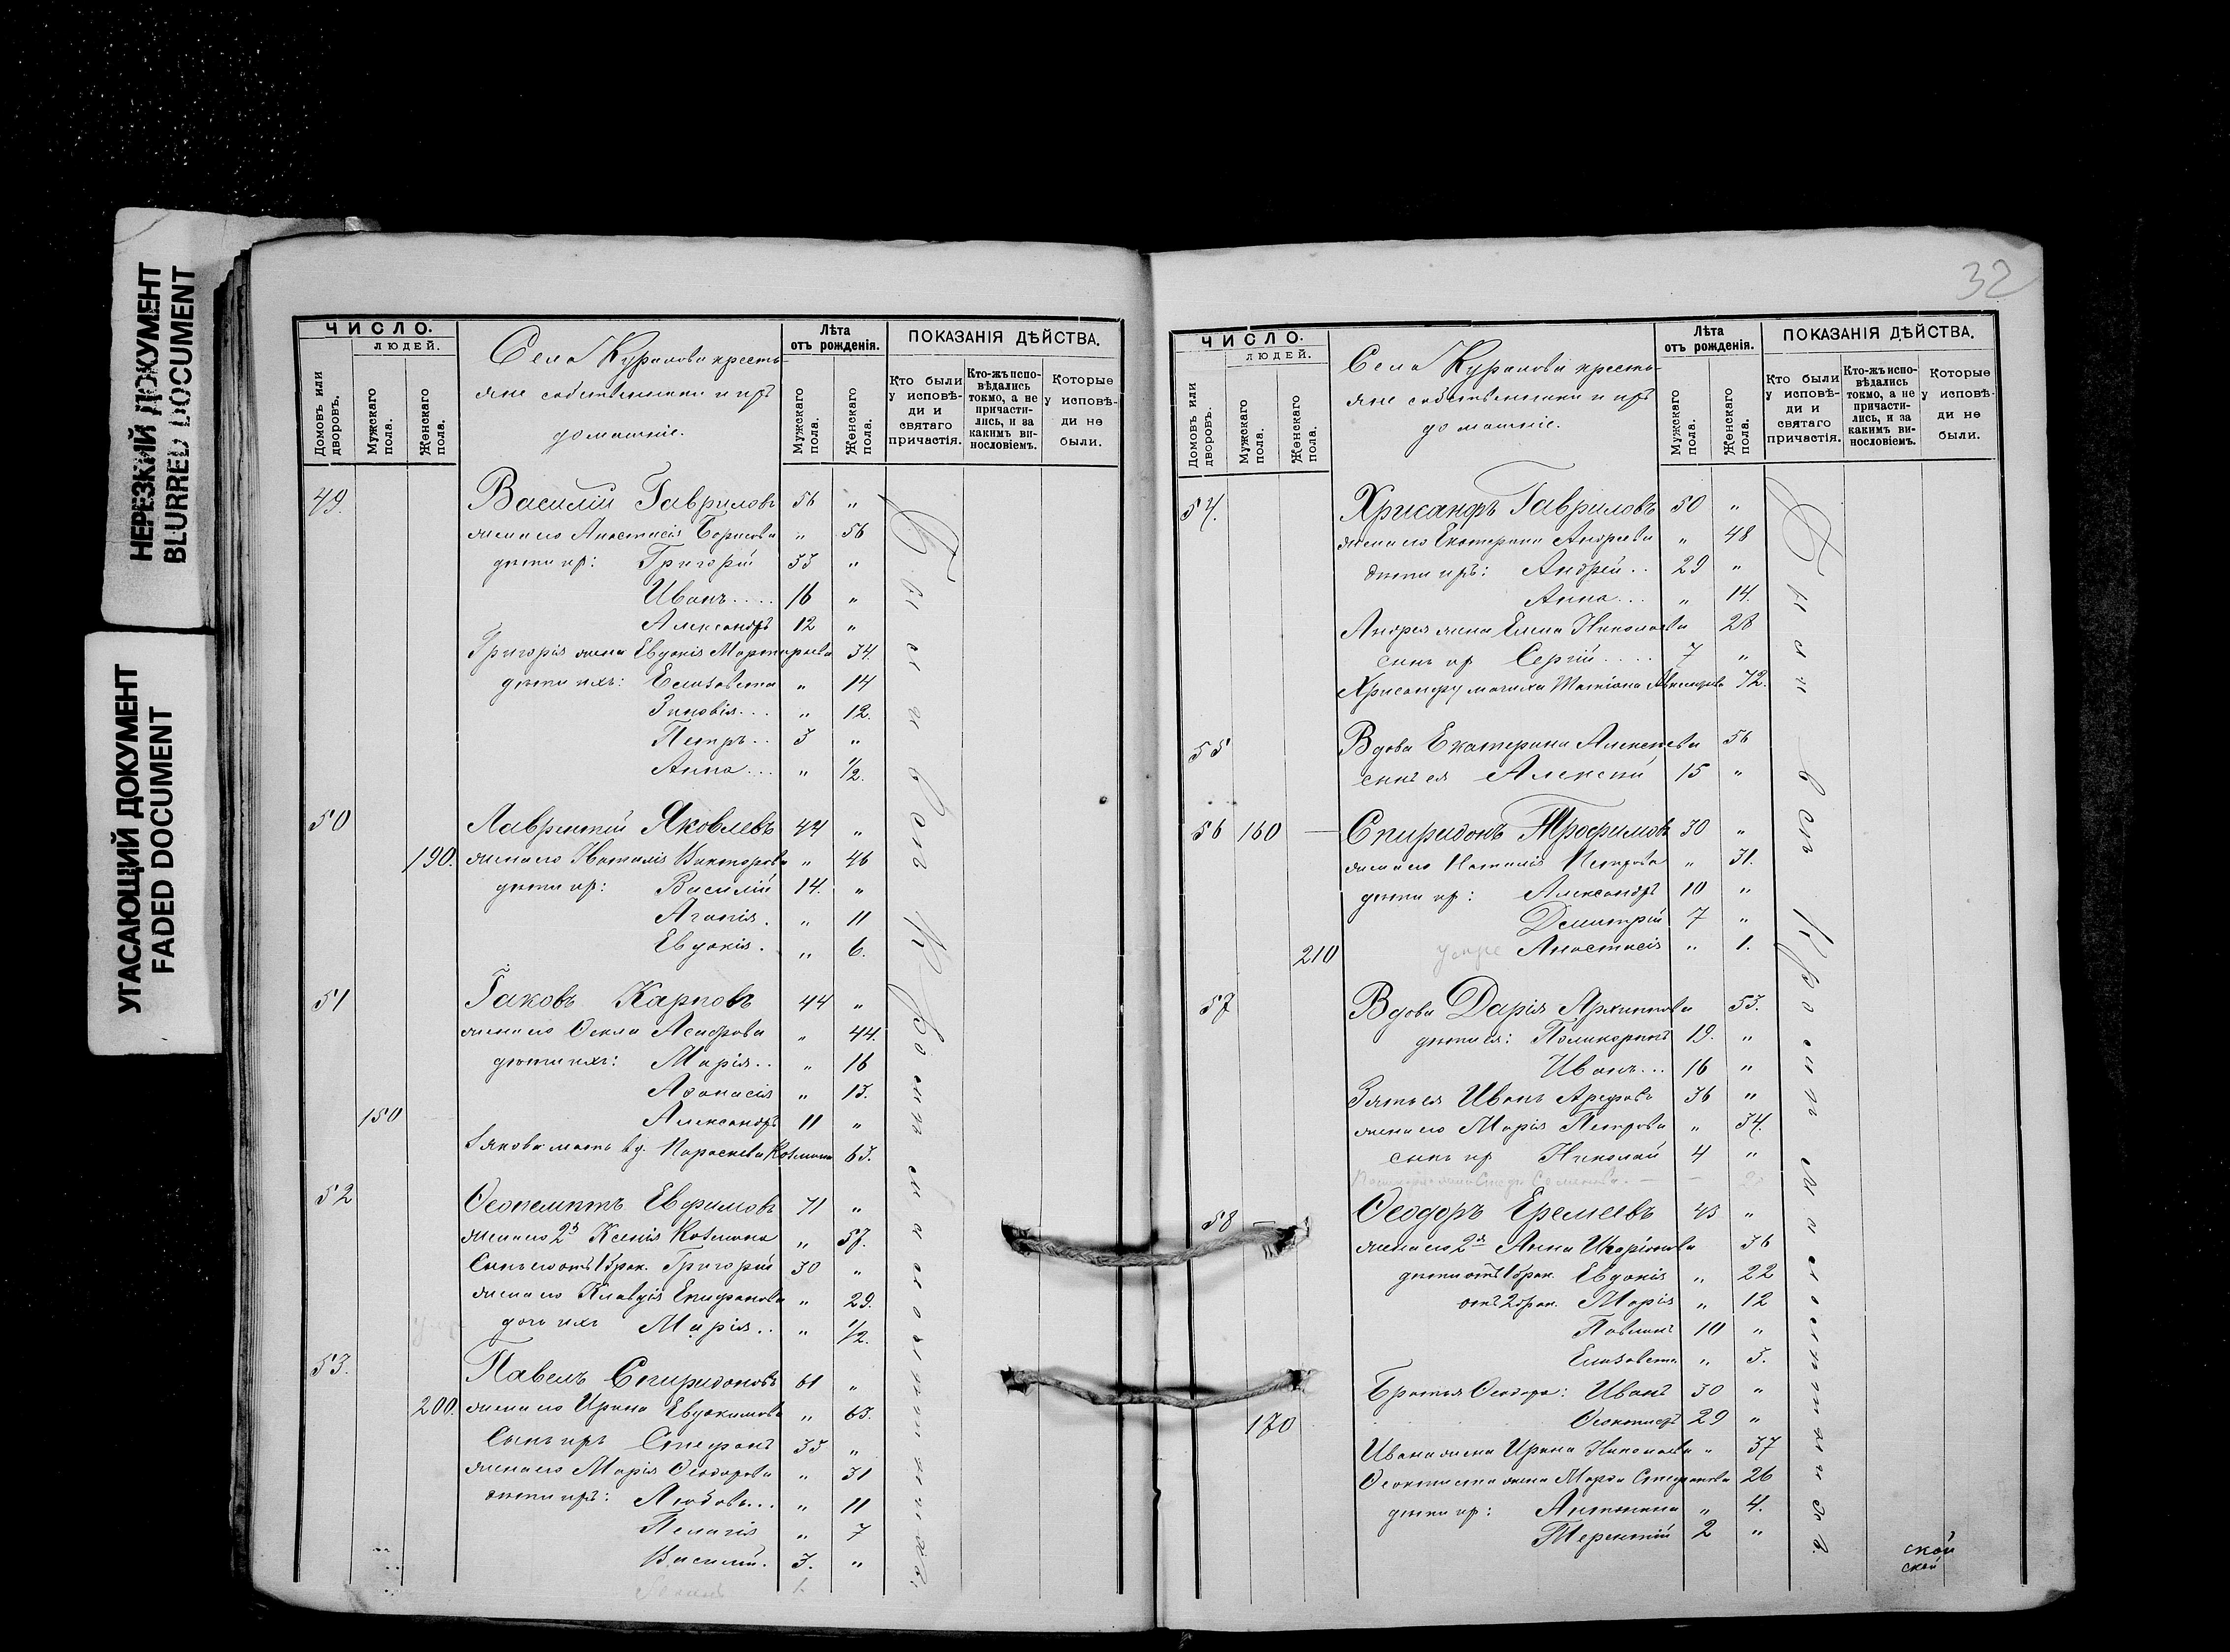 НЕРЕЗКИЙ ДОКУМЕНТ
BLURRED DOCUMENT
УГАСАЮЩИЙ ДОКУМЕНТ
FADED DOCUMENT
ЧИСЛО.
ЛЮДЕЙ.
Домовъ или дворовъ.
Мужскаго пола.
Женскаго пола.
Села Куракова кресть-
яне собственники и ихъ
домашніе.
Лѣта
отъ рожденія.
Мужскаго пола.
Женскаго пола.
ПОКАЗАНІЯ ДѢЙСТВА.
Кто были у исповѣди и святаго причастія.
Кто-жъ исповѣдались токмо, а не причастились, и за какимъ винословіемъ.
Которые у исповѣди не были.
49. Василій Гавриловъ 56 "
жена его Анастасія Борисова " 56
дѣти ихъ: Григорій 33 "
Иванъ.... 16 "
Александръ 12 "
Григорія жена Евдокія Мартирьева 34.
дѣти ихъ: Елизавета " 14
Зиновія... " 12.
Петръ.. 3 "
Анна... " 1/2.
50 Лаврентій Яковлевъ 44 "
190. жена его Наталія Викторова " 46
дѣти ихъ: Василій 14. "
Агапія. " 11
Евдокія. " 6.
51 Іаковъ Карповъ 44 "
жена его Ѳекла " 44.
дѣти ихъ: Марія.. " 16
Аѳанасія " 13.
150 Александръ 11 "
Іякова мать вд. Параскева Козмина 63.
52 Ѳеопемптъ Евфимовъ 71 "
жена его 2я Ксенія Козмина " 57.
Сынъ его отъ 1 брак. Григорій 30 "
жена его Клавдія Епифанова " 29.
дочь ихъ Марія.. " 1/2.
53. Павелъ Спиридоновъ 61 "
200. жена его Ирина Евдокимова " 63.
Сынъ ихъ Стефанъ 33 "
жена его Марія Ѳеодорова " 31
дѣти ихъ: Любовь... " 11
Пелагія " 7
Василій. 3. "
Были всѣ Крестьяне
32
ЧИСЛО.
ЛЮДЕЙ.
Домовъ или дворовъ.
Мужскаго пола.
Женскаго пола.
Села Куракова кресть-
яне собственники и ихъ
домашніе.
Лѣта
отъ рожденія.
Мужскаго пола.
Женскаго пола.
ПОКАЗАНІЯ ДѢЙСТВА.
Кто были у исповѣди и святаго причастія.
Кто-жъ исповѣдались токмо, а не причастились, и за какимъ винословіемъ.
Которые у исповѣди не были.
54. Хрисанфъ Гавриловъ 50 "
жена его Екатерина Андреева " 48
дѣти ихъ: Андрей.. 29 "
Анна... " 14.
Андрея жена Елена Николаева 28
сынъ ихъ Сергій.... 7 "
Хрисанфу мачиха Татіана 72.
55 Вдова Екатерина Алексѣева 56
сынъ ея Алексій 15 "
56 160 — Спиридонъ Трофимовъ 30 "
жена его Наталія Петрова " 31.
дѣти ихъ: Александръ 10 "
Димитрій 7 "
210 умре Анастасія " 1.
57 Вдова Дарія Архиппова 53.
дѣти ея: Поликарпъ 19. "
Иванъ... 16 "
Зять ея Иванъ Арефовъ 36 "
жена его Марія Петрова " 34.
сынъ ихъ Николай 4 "
58 — Ѳеодоръ Еремеевъ 43 "
жена его 2я Анна Иларіонова 36
дѣти отъ 1 брак. Евдокія " 22
отъ 2 брак. Марія " 12
Павлинъ 10 "
Елизавета " 3.
Братья Ѳеодора: Иванъ 30 "
170 Ѳеоктистъ 29 "
Ивана жена Ирина Николаева " 37
Ѳеоктиста жена Марѳа Стефанова 26
дѣти ихъ: Антонина " 4.
Терентій 2 "
Были всѣ
ской
ской